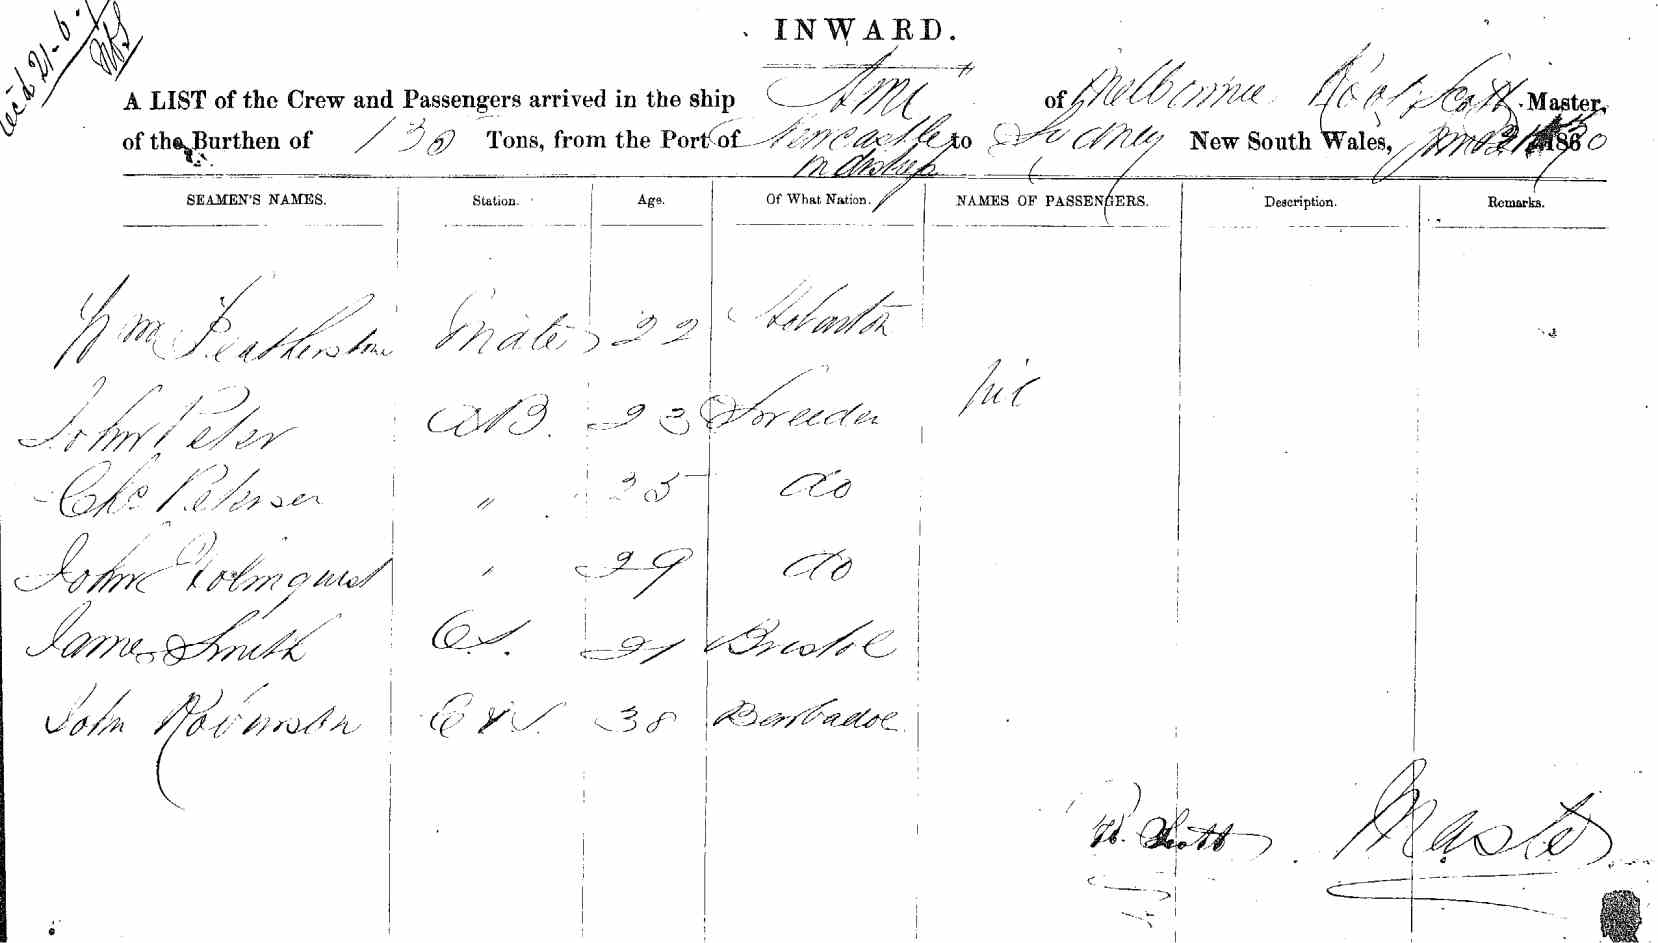 Rec'd 21-6-
INWARD.
A LIST of the Crew and Passengers arrived in the ship Ami of Melbourne Robt Scott Master,
of the Burthen of 130 Tons, from the Port of Newcastle to Sydney New South Wales, 1860
SEAMEN'S NAMES. Station. Age. Of What Nation. NAMES OF PASSENGERS. Description. Remarks.
Wm Featherstone Mate 22 Hobarton
John Peter AB. 23 Sweeden nil
Chs Petersen " 25 do
John Holmquist " 29 do
James Smith O.S. 21 Bristol
John Robinson C & S. 38 Barbadoe
R. Scott Master